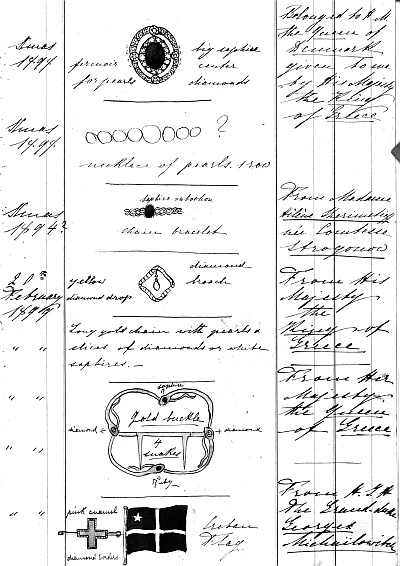 Xmas
1898
fermoir
for pearls
big saphire
center
diamonds
Belonged to H. M
the Queen of
Denmark
given to me
by His Majesty
the King
of Greece
Xmas
1898
?
necklace of pearls. 1 row
Xmas
1894?
saphire cabochon
chain bracelet
From Madame
née Comtesse
Strogonow
20th
February
1899
yellow
diamond drops
diamond
broach
From His
Majesty
the
King of
Greece
" "
Long gold chain with pearls &
slices of diamonds or white
saphires. —
" "
saphire
gold buckle
diamond
diamond
4
snakes
Ruby
From Her
Majesty
the Queen
of Greece
" "
" "
pink enamel
diamond borders
Cretan
Flag
From H. I. H.
The Grand duke
Georges
Michailowitch